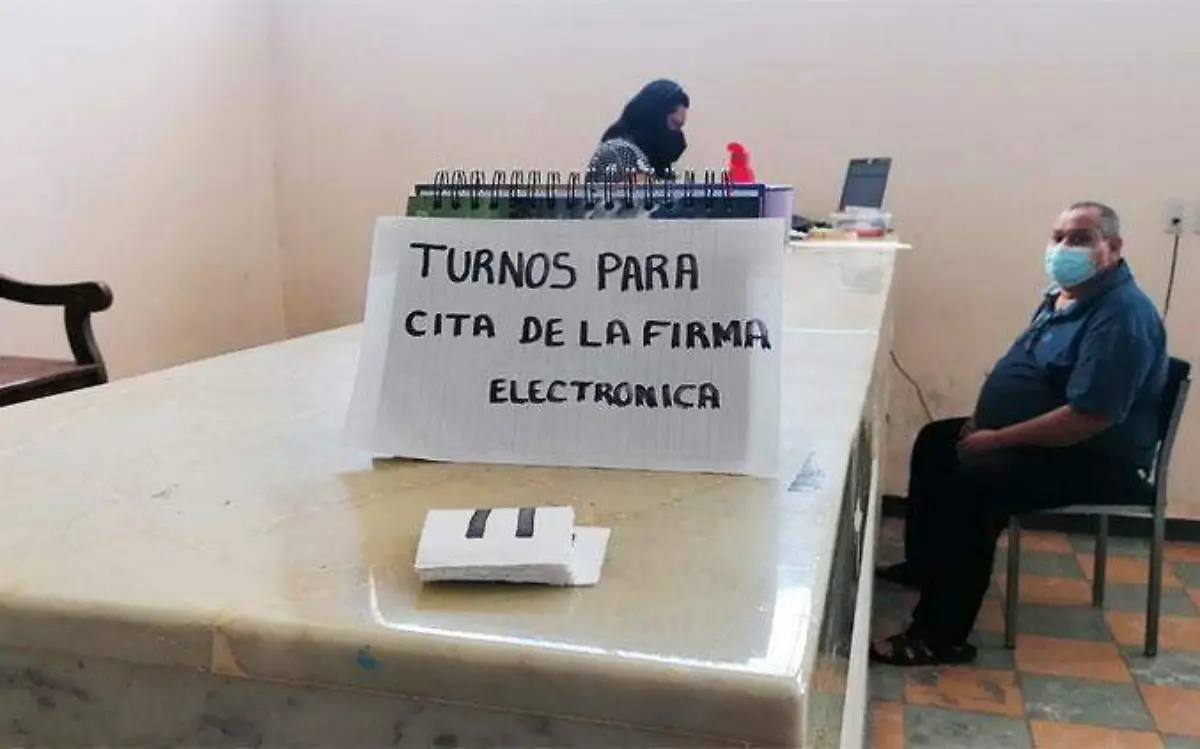 TURNOS PARA
CITA DE LA FIRMA
ELECTRONICA
11